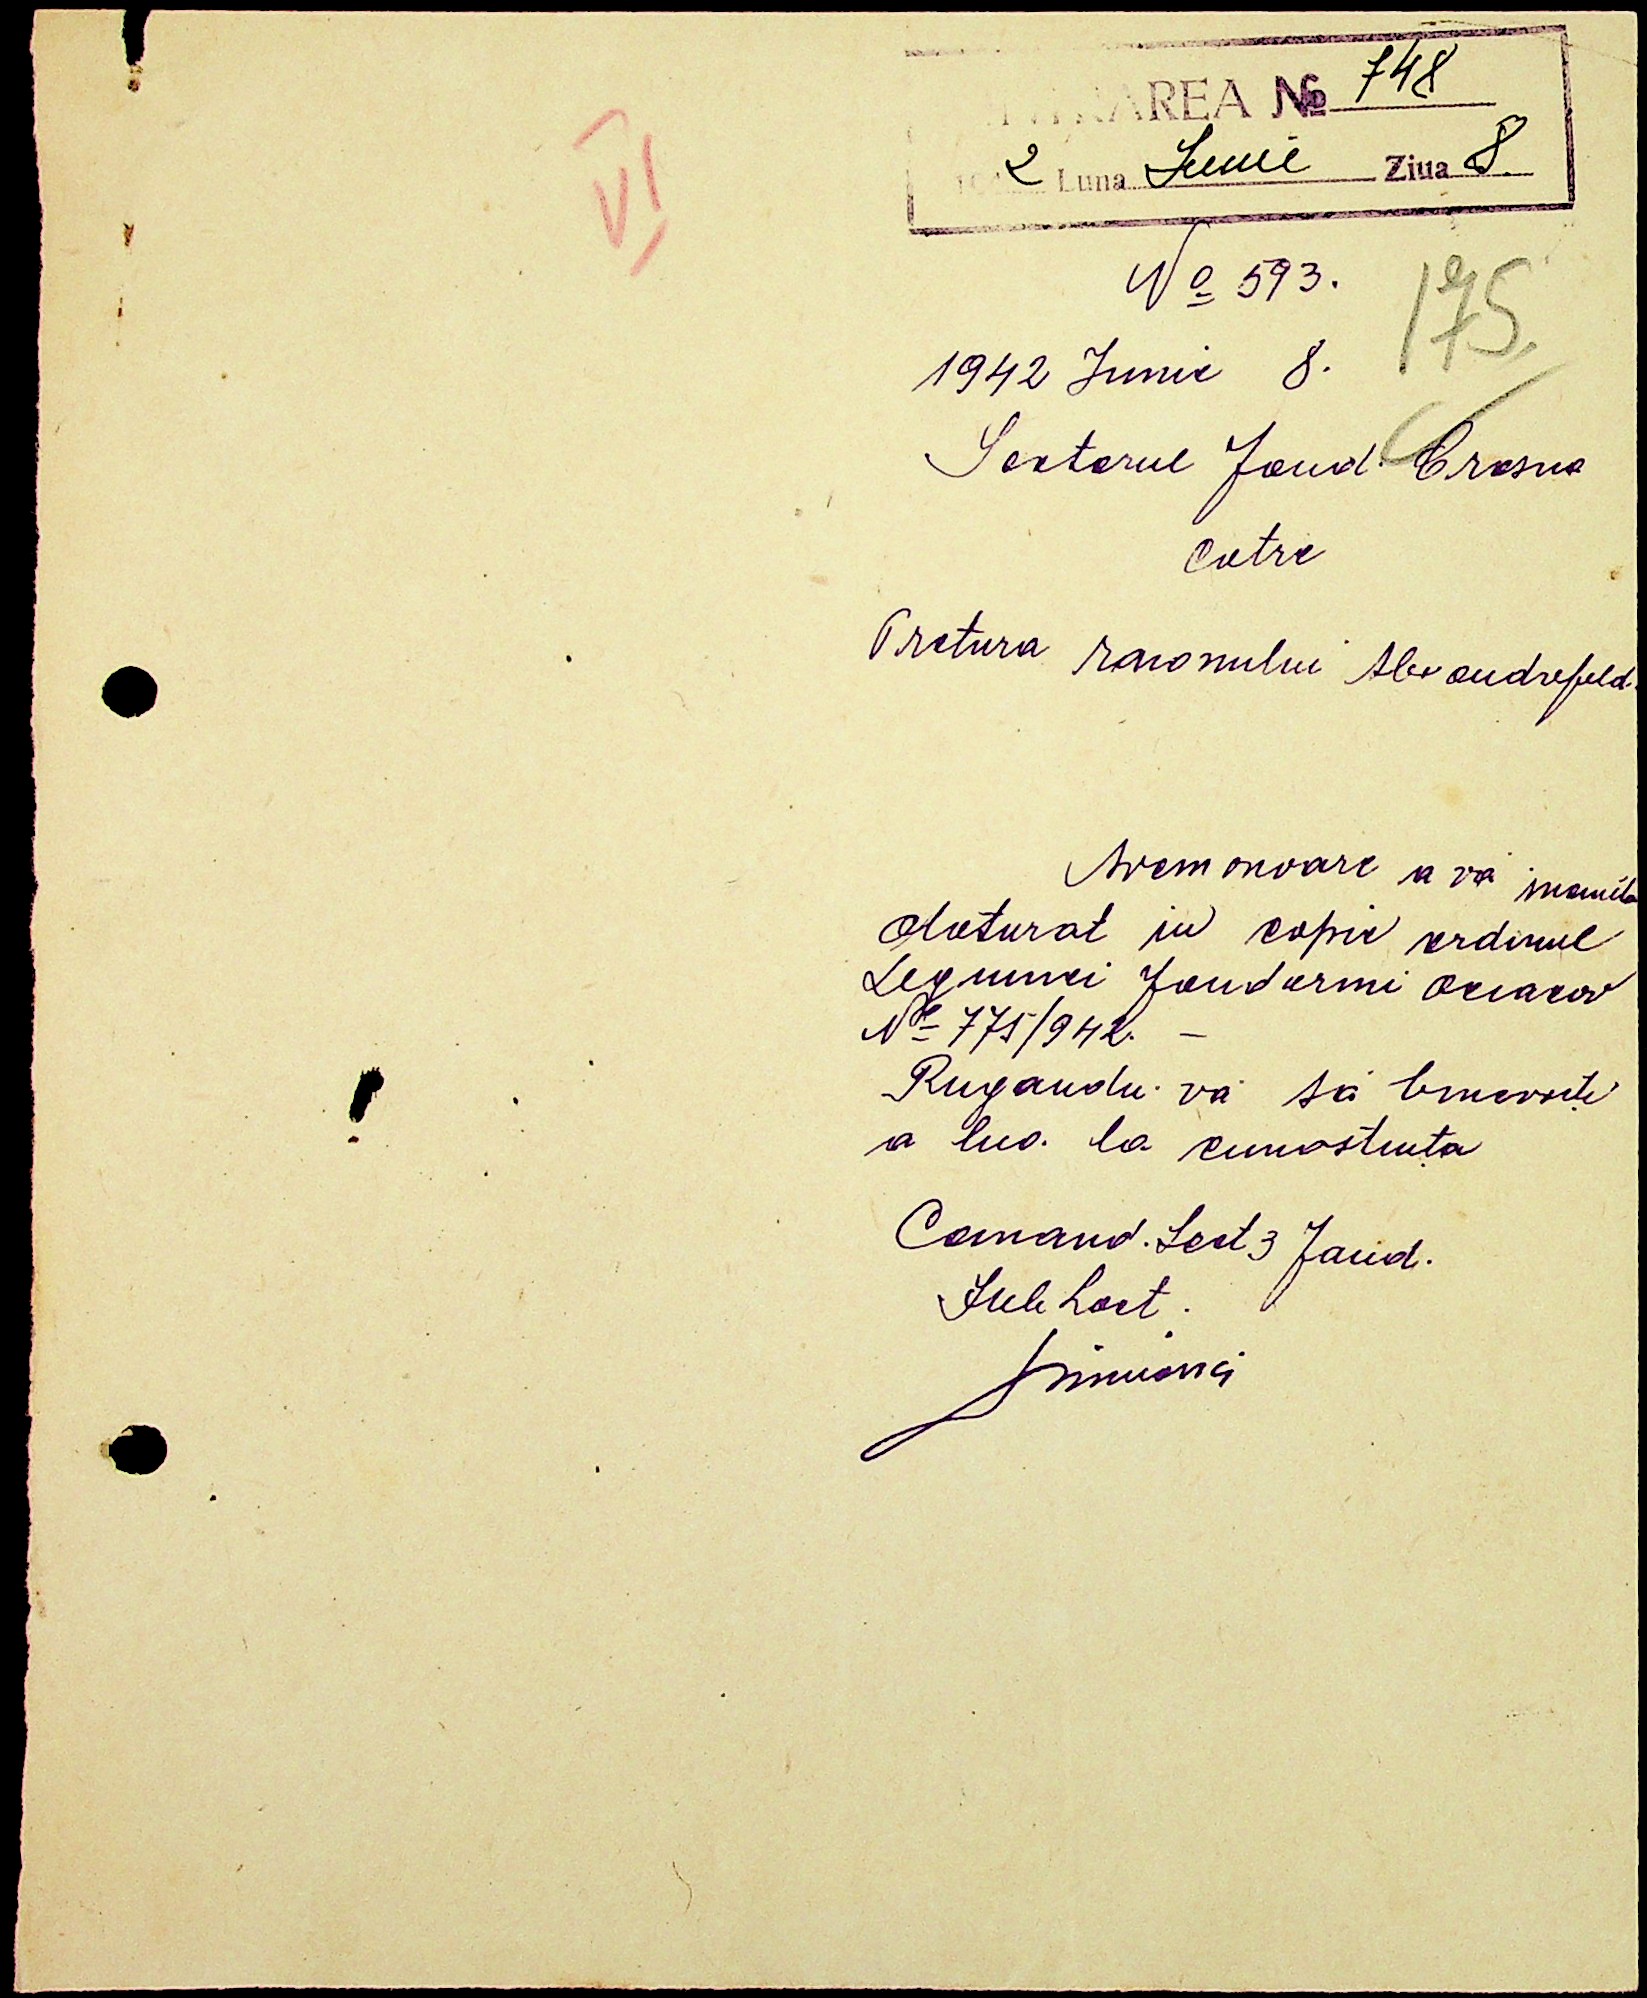 INTRAREA № 748
1942 Luna Iunie Ziua 8.
VI
№ 593.
175.
1942 Iunie 8.
Sectorul Jand. Crasna
catre
Pretura raionului Alexandrefeld.
Avem onoare a vă inainta
alaturat in copie ordinul
Legiunei Jandarmi Oceacov
№ 775/942. -
Rugandu-vă să binevoiti
a lua la cunostinta
Comand. Sect 3 Jand.